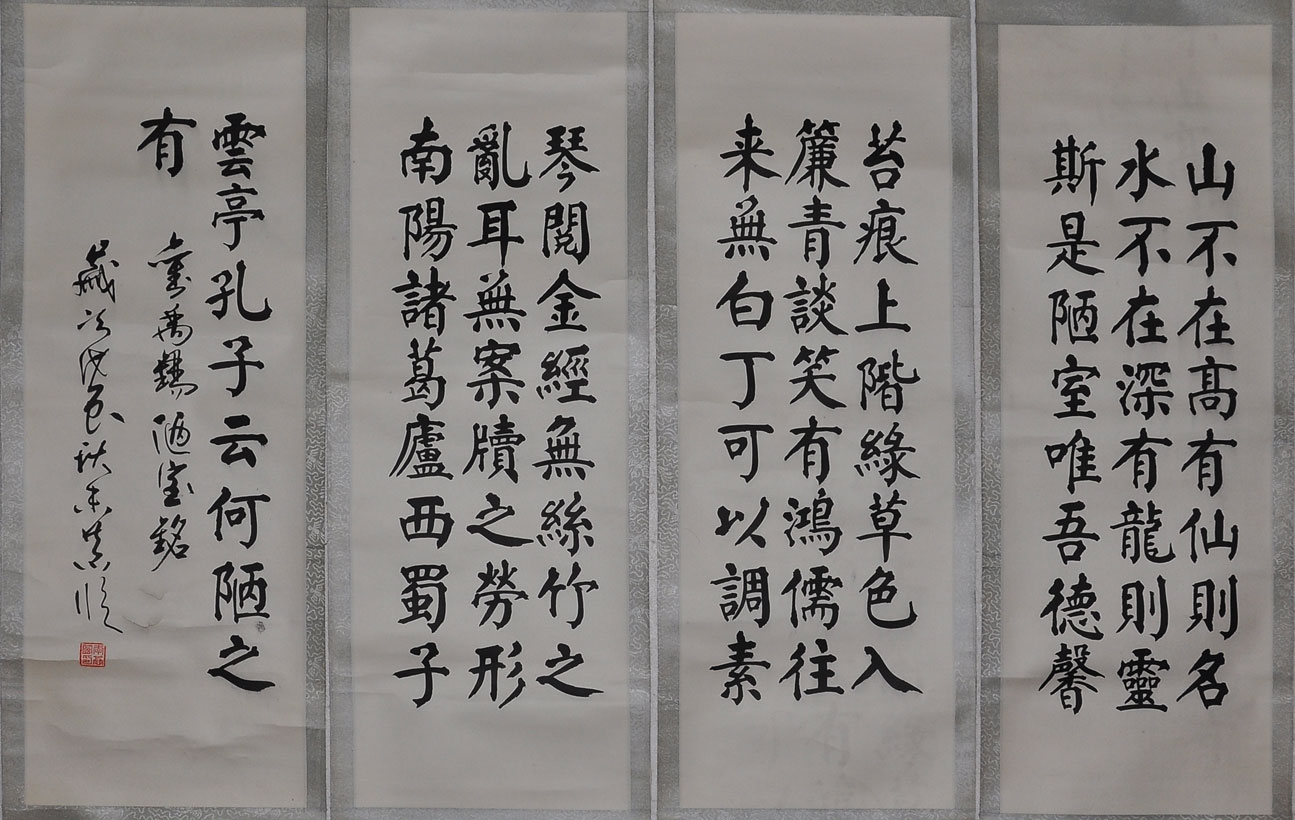 山不在高有仙則名
水不在深有龍則靈
斯是陋室唯吾德馨
苔痕上階綠草色入
簾青談笑有鴻儒往
来無白丁可以調素
琴閱金經無絲竹之
亂耳無案牘之勞形
南陽諸葛廬西蜀子
雲亭孔子云何陋之
有
禹錫陋室銘
歲次